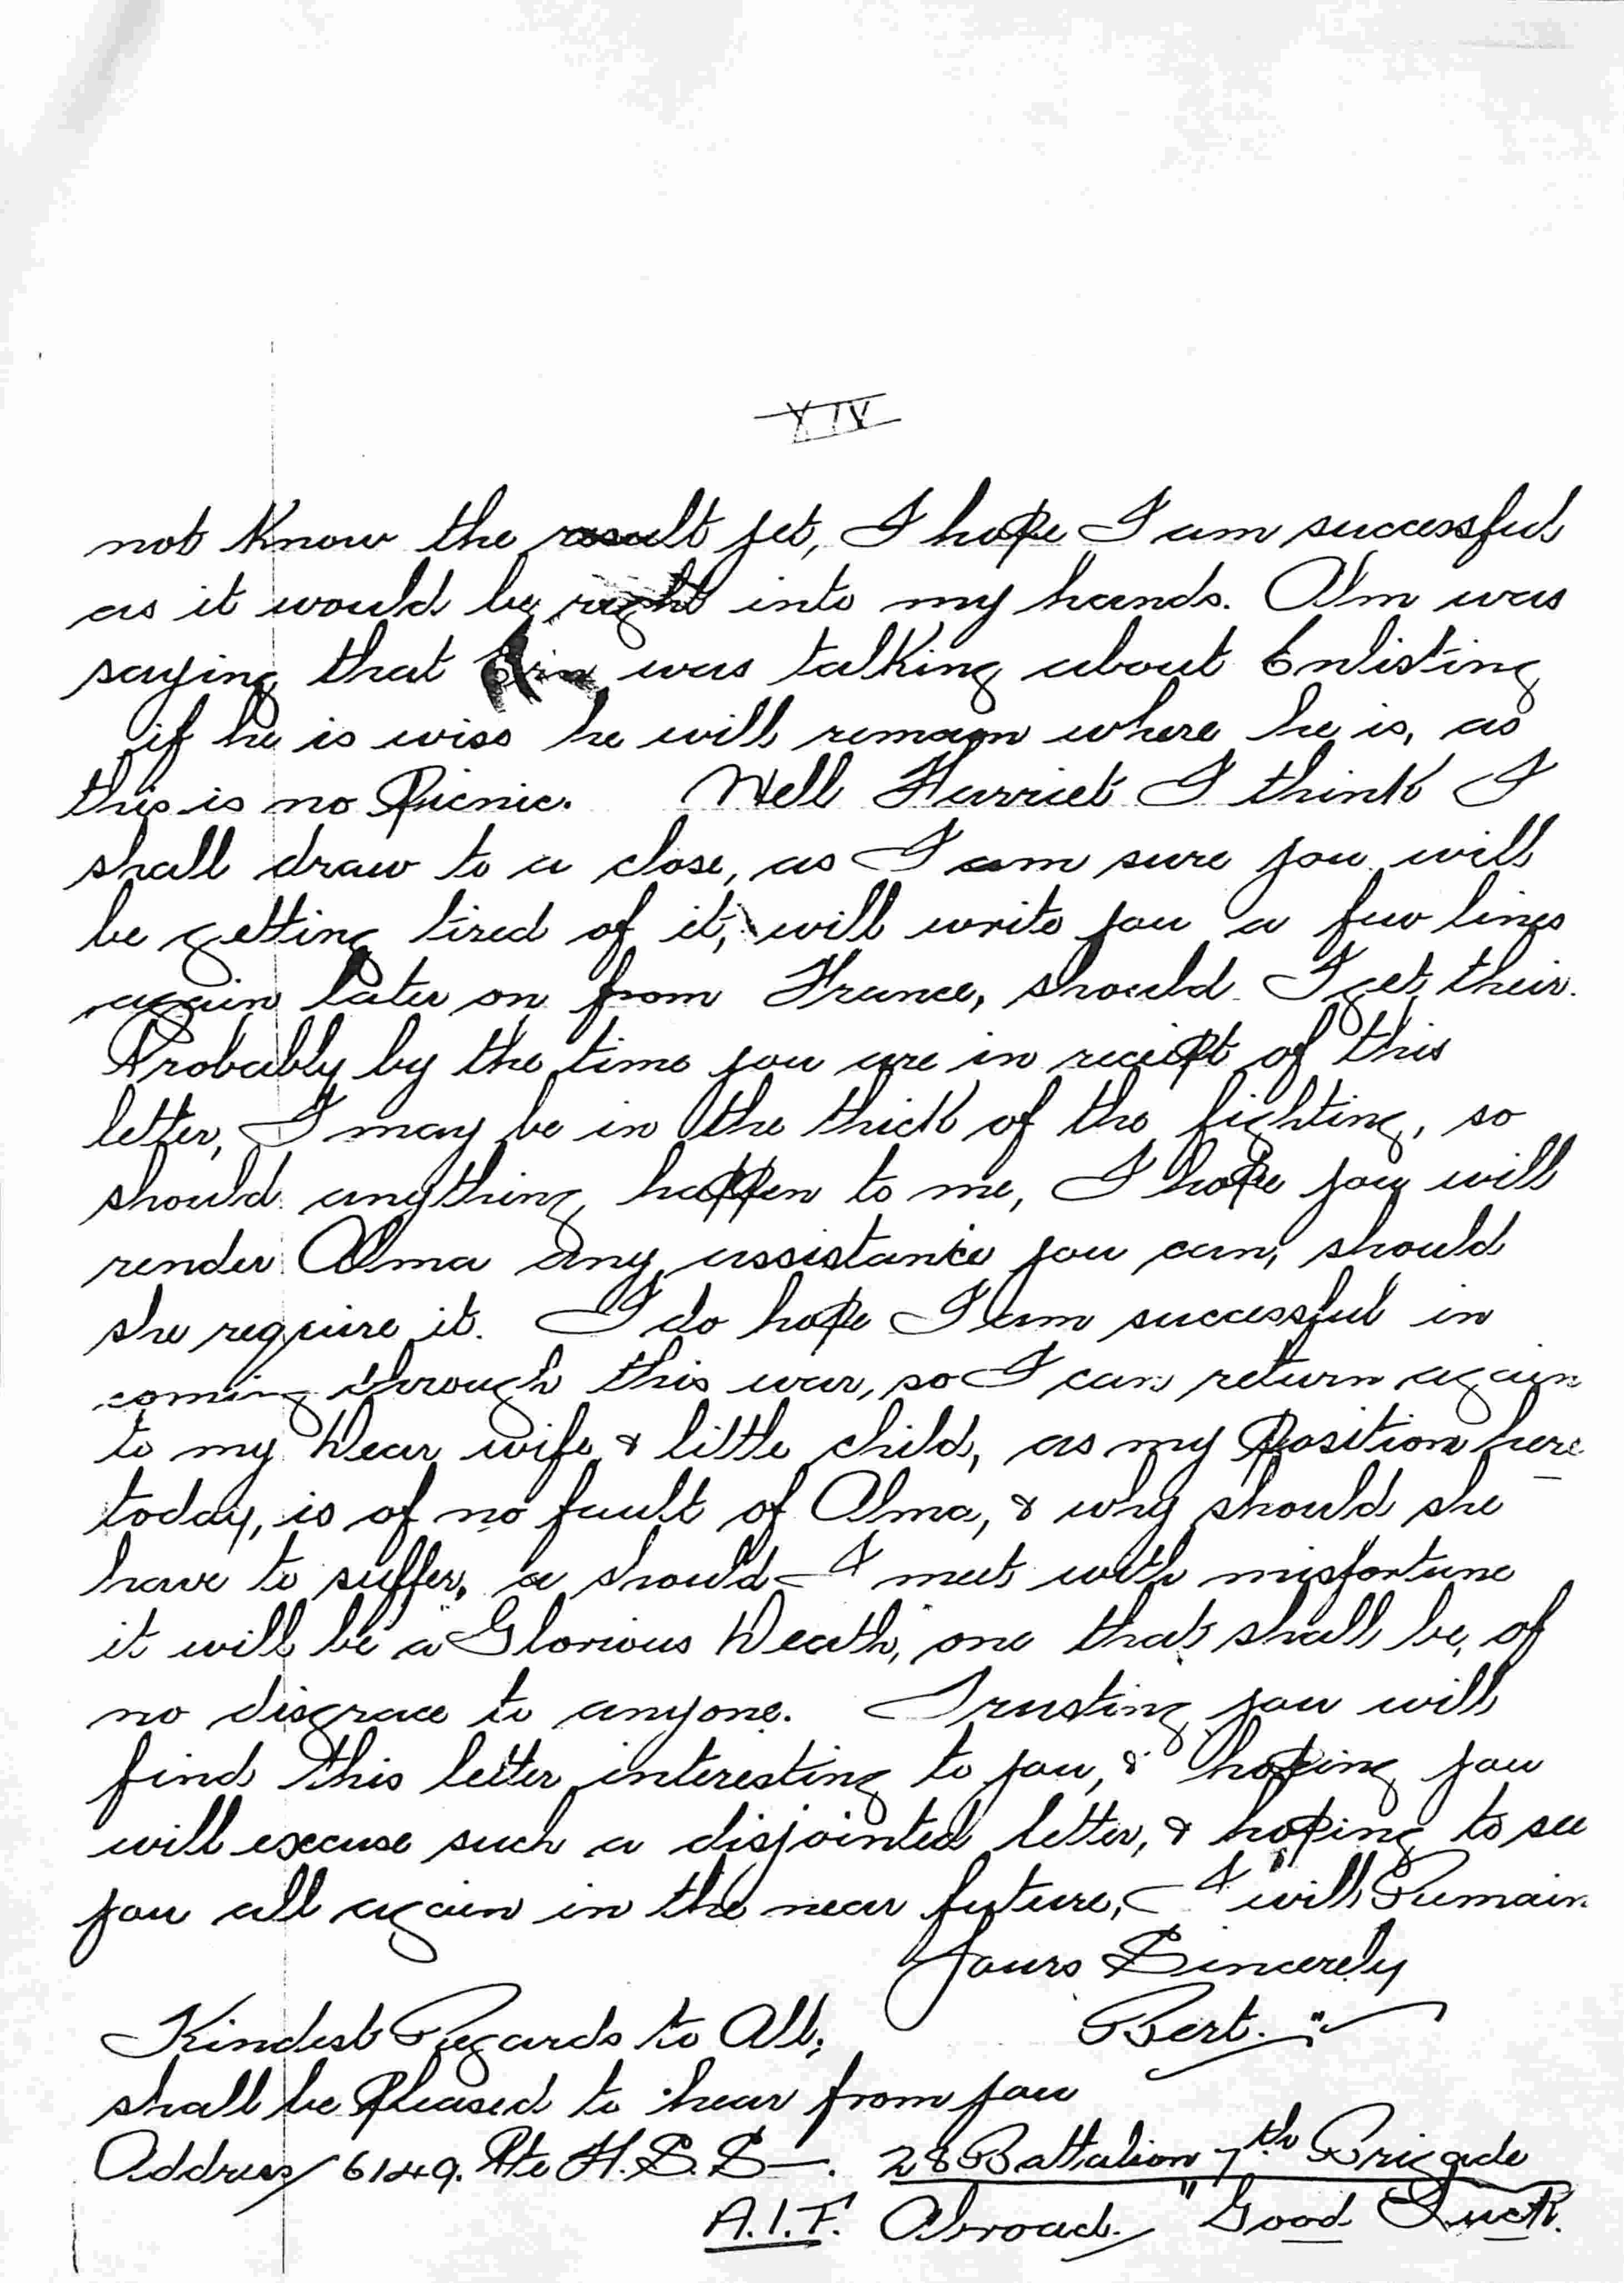 XIV
not Know the result yet, I hope I am successful
as it would be right into my hands. Alm was
saying that was talking about Enlisting
if he is wise he will remain where he is, as
this is no Picnic. Well Harriet I think I
shall draw to a close, as I am sure you will
be getting tired of it, will write you a few lines
again later on from France, should I get their.
Probably by the time you are in reciept of this
letter, I may be in the thick of the fighting, so
should anything happen to me, I hope you will
render Alma any assistance you can, should
she require it. I do hope I am successful in
coming through this war, so I can return again
to my Dear wife & little child, as my Position here
today, is of no fault of Alma, & why should she
have to suffer, should I meet with misfortune
it will be a Glorious Death, one that shall be, of
no disgrace to anyone. Trusting you will
find this letter interesting to you, & hoping you
will excuse such a disjointed letter, & hoping to see
you all again in the near future, I will Remain
Yours Sincerely
Kindest Regards to All, Bert.
shall be Pleased to hear from you
Address 6149. Pte H.S.S—. 28 Battalion 7th Brigade
A.I.F. Abroad. "Good Luck.